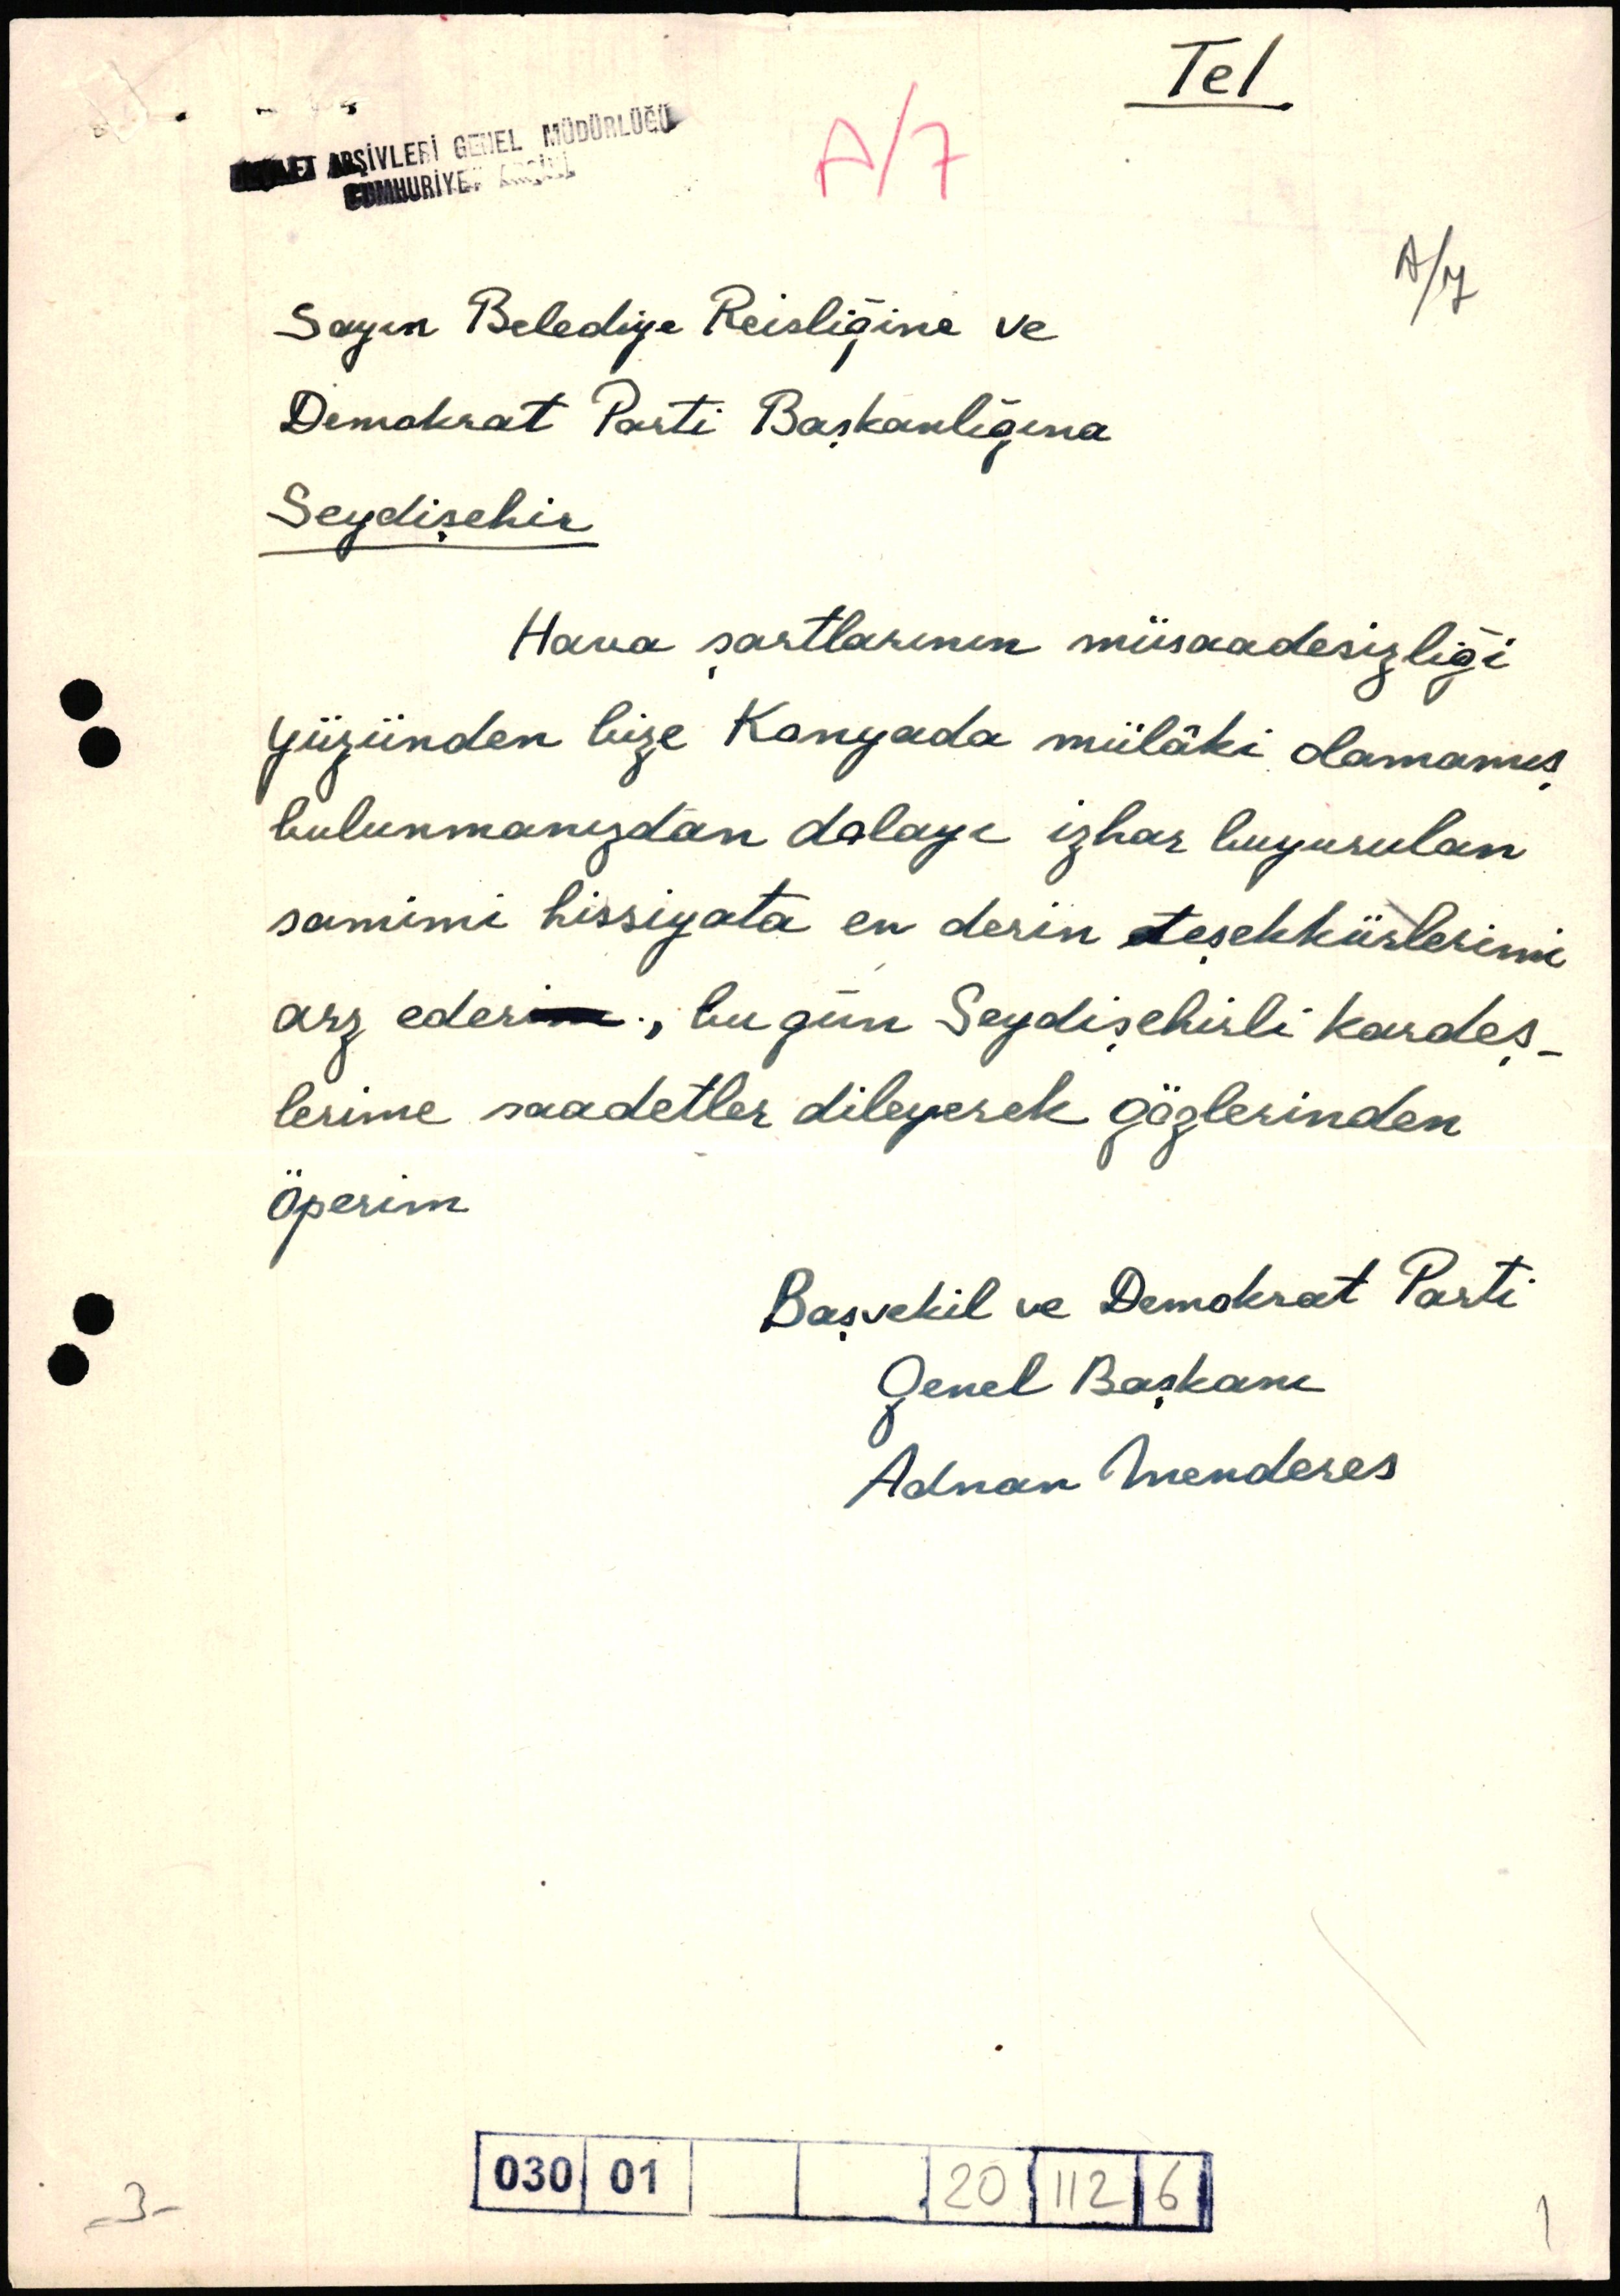 Tel
ARŞİVLERİ GENEL MÜDÜRLÜĞÜ
CUMHURİYET ARŞİVİ
A/7
A/7
Sayın Belediye Reisliğine ve
Demokrat Parti Başkanlığına
Seydişehir
Hava şartlarının müsaadesizliği
yüzünden bize Konyada mülâki olamamış
bulunmanızdan dolayı izhar buyurulan
samimi hissiyata en derin teşekkürlerimi
arz eder, bu gün Seydişehirli kardeş-
lerime saadetler dileyerek gözlerinden
öperim
Başvekil ve Demokrat Parti
Genel Başkanı
Adnan Menderes
030 01 20 112 6
-3-
1